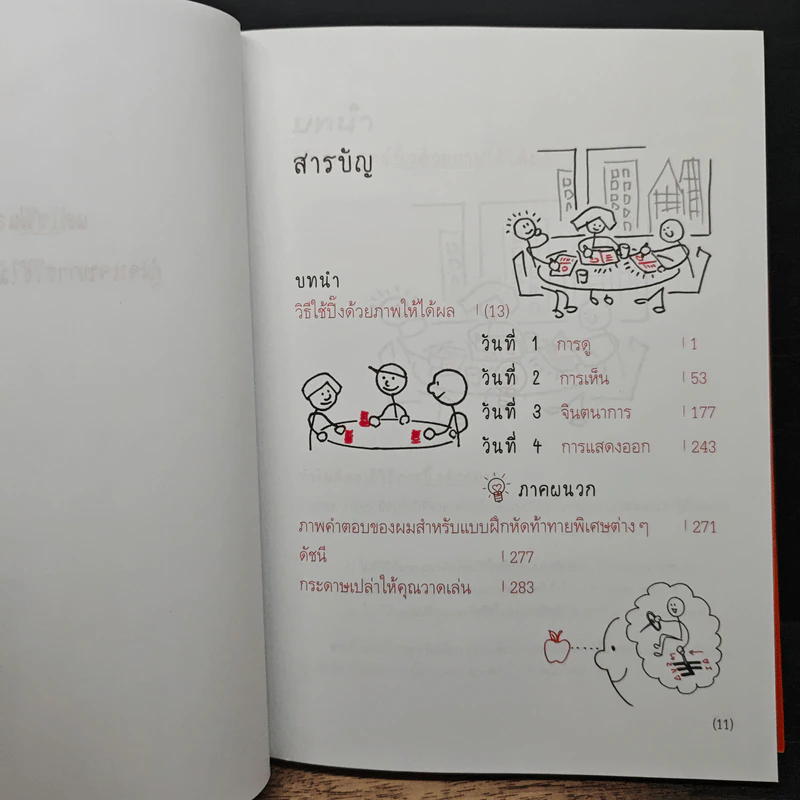 สารบัญ
บทนำ
วิธีใช้ปิ๊งด้วยภาพให้ได้ผล | (13)
วันที่ 1 การดู | 1
วันที่ 2 การเห็น | 53
วันที่ 3 จินตนาการ | 177
วันที่ 4 การแสดงออก | 243
ภาคผนวก
ภาพคำตอบของผมสำหรับแบบฝึกหัดท้าทายพิเศษต่าง ๆ | 271
ดัชนี | 277
กระดาษเปล่าให้คุณวาดเล่น | 283
(11)